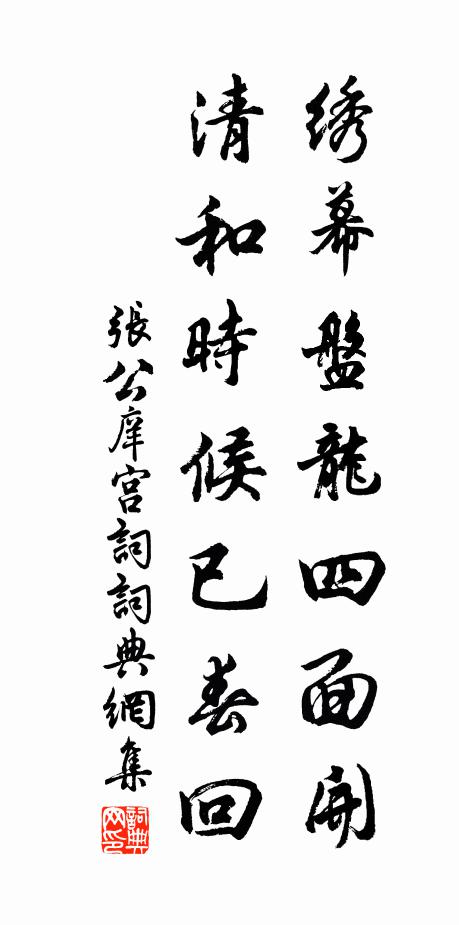 绣幕盤龍四面開
清和時候已春回
張公庠宫詞詞典網集
詞典網印